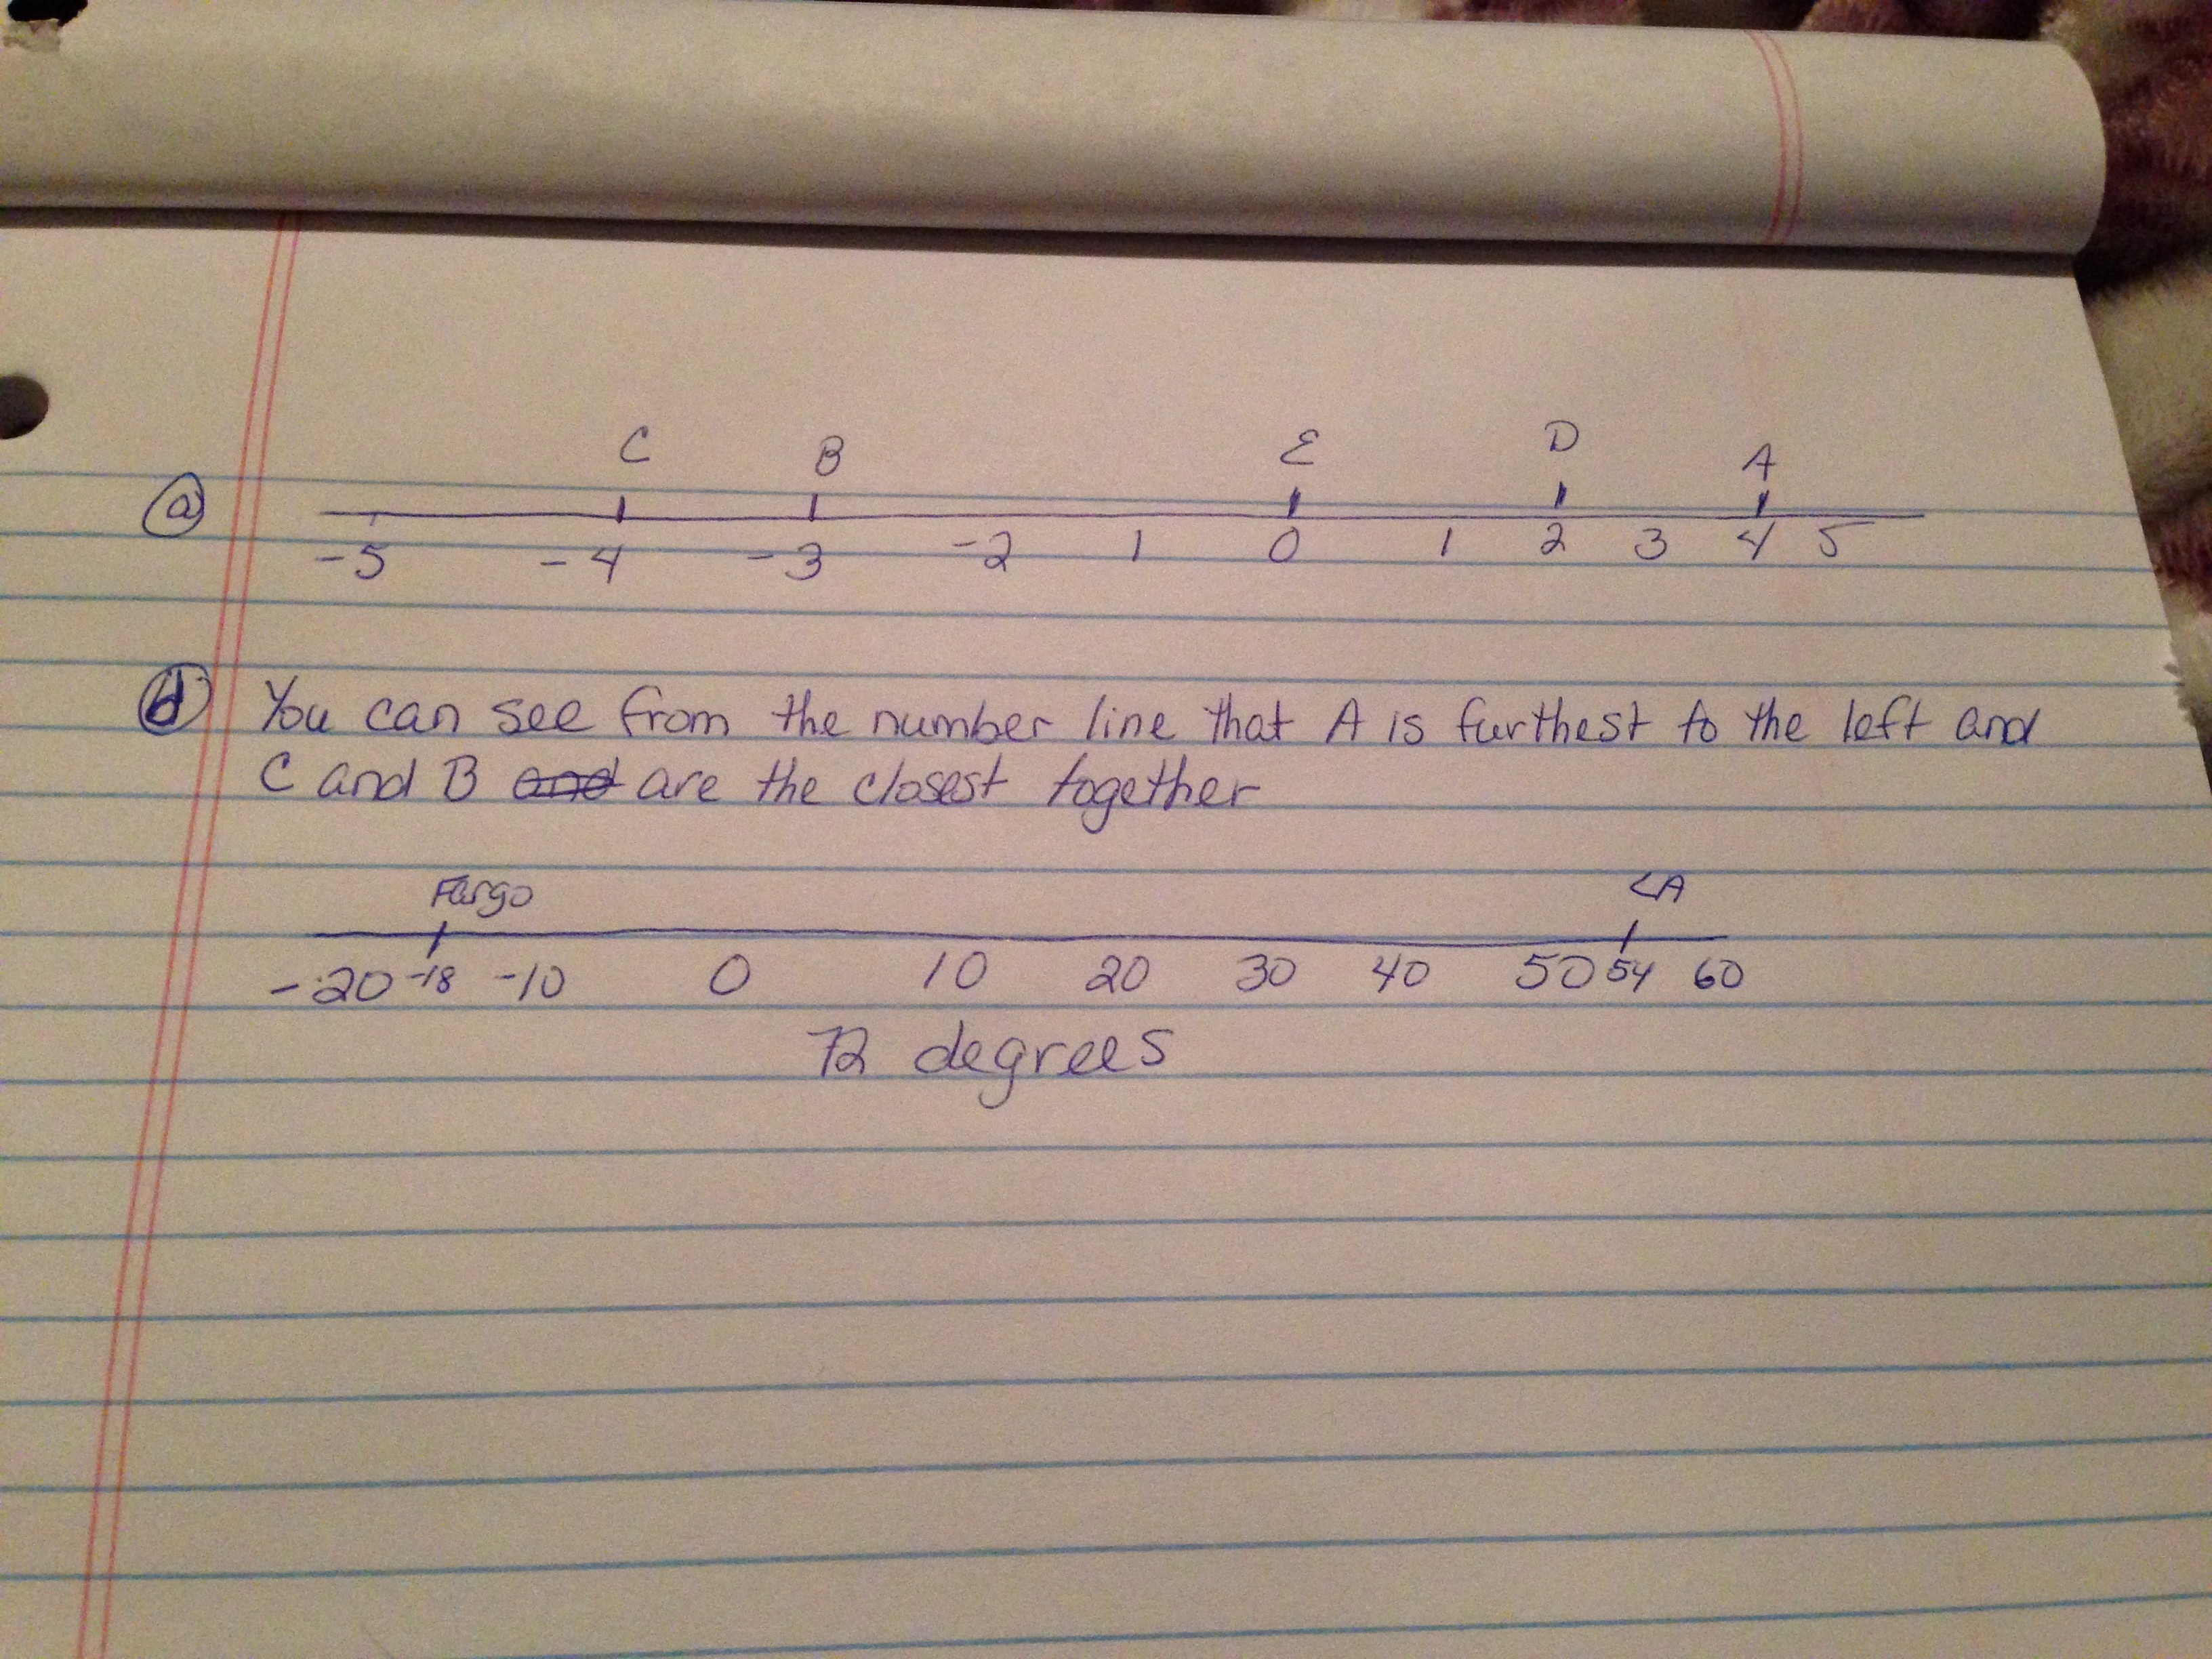 C B E D A
ⓐ
-5 -4 -3 -2 1 0 1 2 3 4 5
ⓓ You can see from the number line that A is furthest to the left and
C and B and are the closest together
Fargo LA
-20 -18 -10 0 10 20 30 40 50 54 60
72 degrees